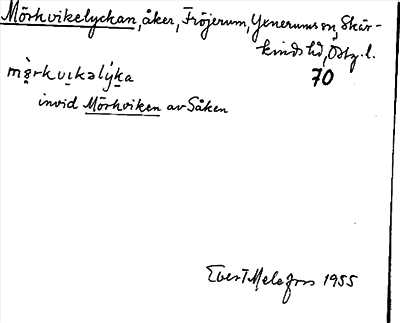 Mörkvikelyckan, åker, Fröjerum, Yxnerums sn, Skär-
kinds hd, Östg. l.
70
invid Mörkviken av Såken
Evert Melefors 1955